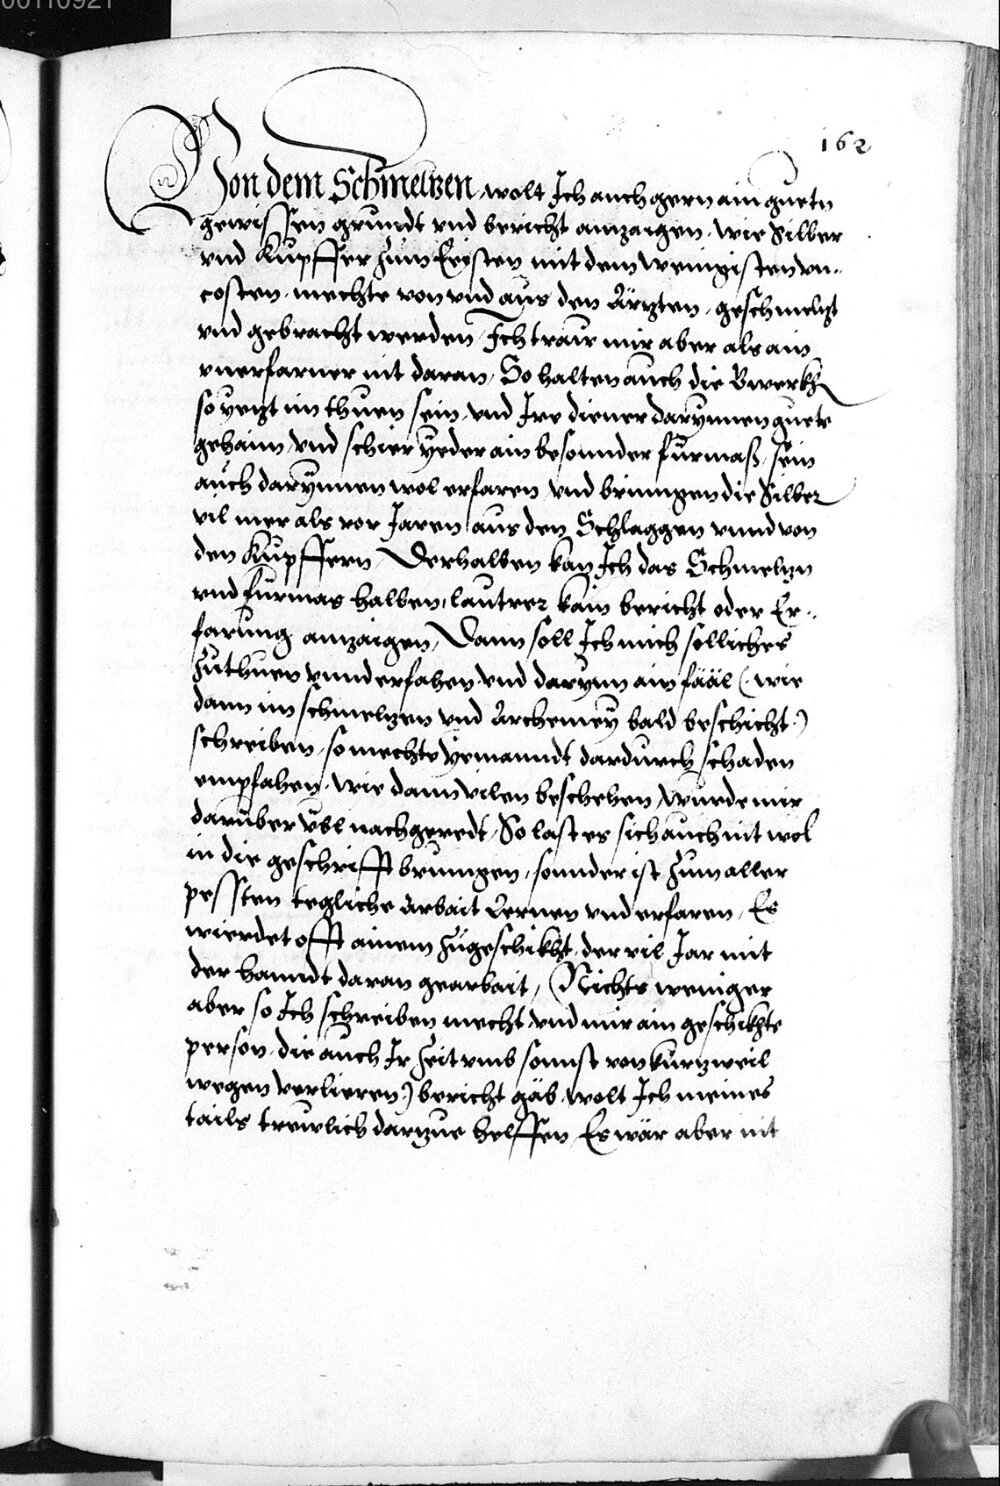 00110921
162
Von dem Schmeltzen, wolt Ich auch gern ain guetn
gewissen grundt vnd bericht anzaigen, wie Silber
vnd Kupffer zum Eeisten mit dem wenigisten vn-
costen, mechte von vnd aus den Ärtzten, geschmeltzt
vnd gebracht werden, Ich traw mir aber als ain
vnerfarner nit daran, So halten auch die Gwerkh
so yetzt im thuen sein, vnd Ire diener darynnen guete
gehaim, vnd schier yeder ain besonnder fürmaß, sein
auch darynnen wol erfaren vnd bringen die Silber
vil mer als vor Jaren aus den Schlaggen vnnd von
den Kupffern, Derhalben kan Ich das Schmeltzn
vnd fürmas halben, lautrer kain bericht oder Er-
farung anzaigen, Dann soll Ich mich solliches
zuthuen vnnderfahen, vnd darynn ain fääl (wie
dann im schmeltzen vnd Archemey bald beschicht)
schreiben, so mechte yemanndt dardurch schaden
empfahen, wie dann vilen beschehen, wurde mir
darüber übl nachgeredt, So last es sich auch nit wol
in die geschrifft bringen, sonnder ist zum aller
pessten tegliche Arbait Lernen vnd erfaren, Es
wierdet offt ainem zugeschikht, der vil Jar mit
der hanndt daran gearbait, (Nichts weniger
aber so Ich schreiben mecht, vnd mir ain geschikhte
person, die auch Ir zeit vmb sonnst von kurtzweil
wegen verlieren) bericht gäb, wolt Ich meines
tails trewlich dartzue helffen, Es wär aber nit